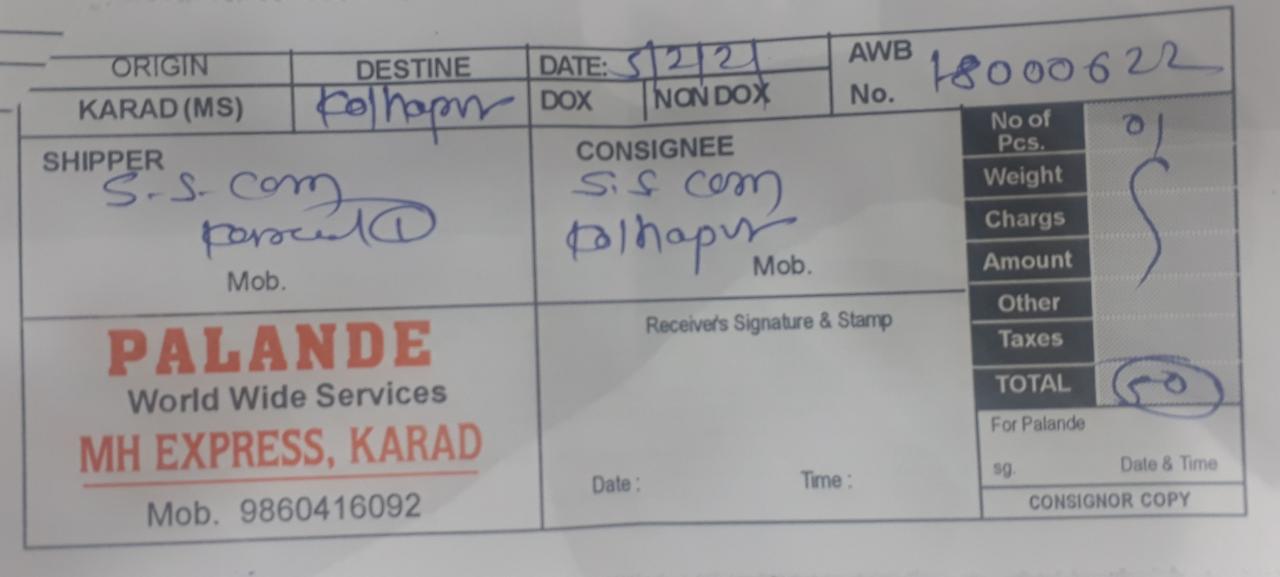 ORIGIN DESTINE DATE: 5/2/21 AWB No. 18000622
KARAD (MS) Kolhapur DOX NON DOX
SHIPPER
S.S. Com
Mob.
CONSIGNEE
S.S Com
Kolhapur
Mob.
No of Pcs. 01
Weight
Chargs
Amount
Other
Taxes
TOTAL 50
PALANDE
World Wide Services
MH EXPRESS, KARAD
Mob. 9860416092
Receiver's Signature & Stamp
Date : Time :
For Palande
sg. Date & Time
CONSIGNOR COPY